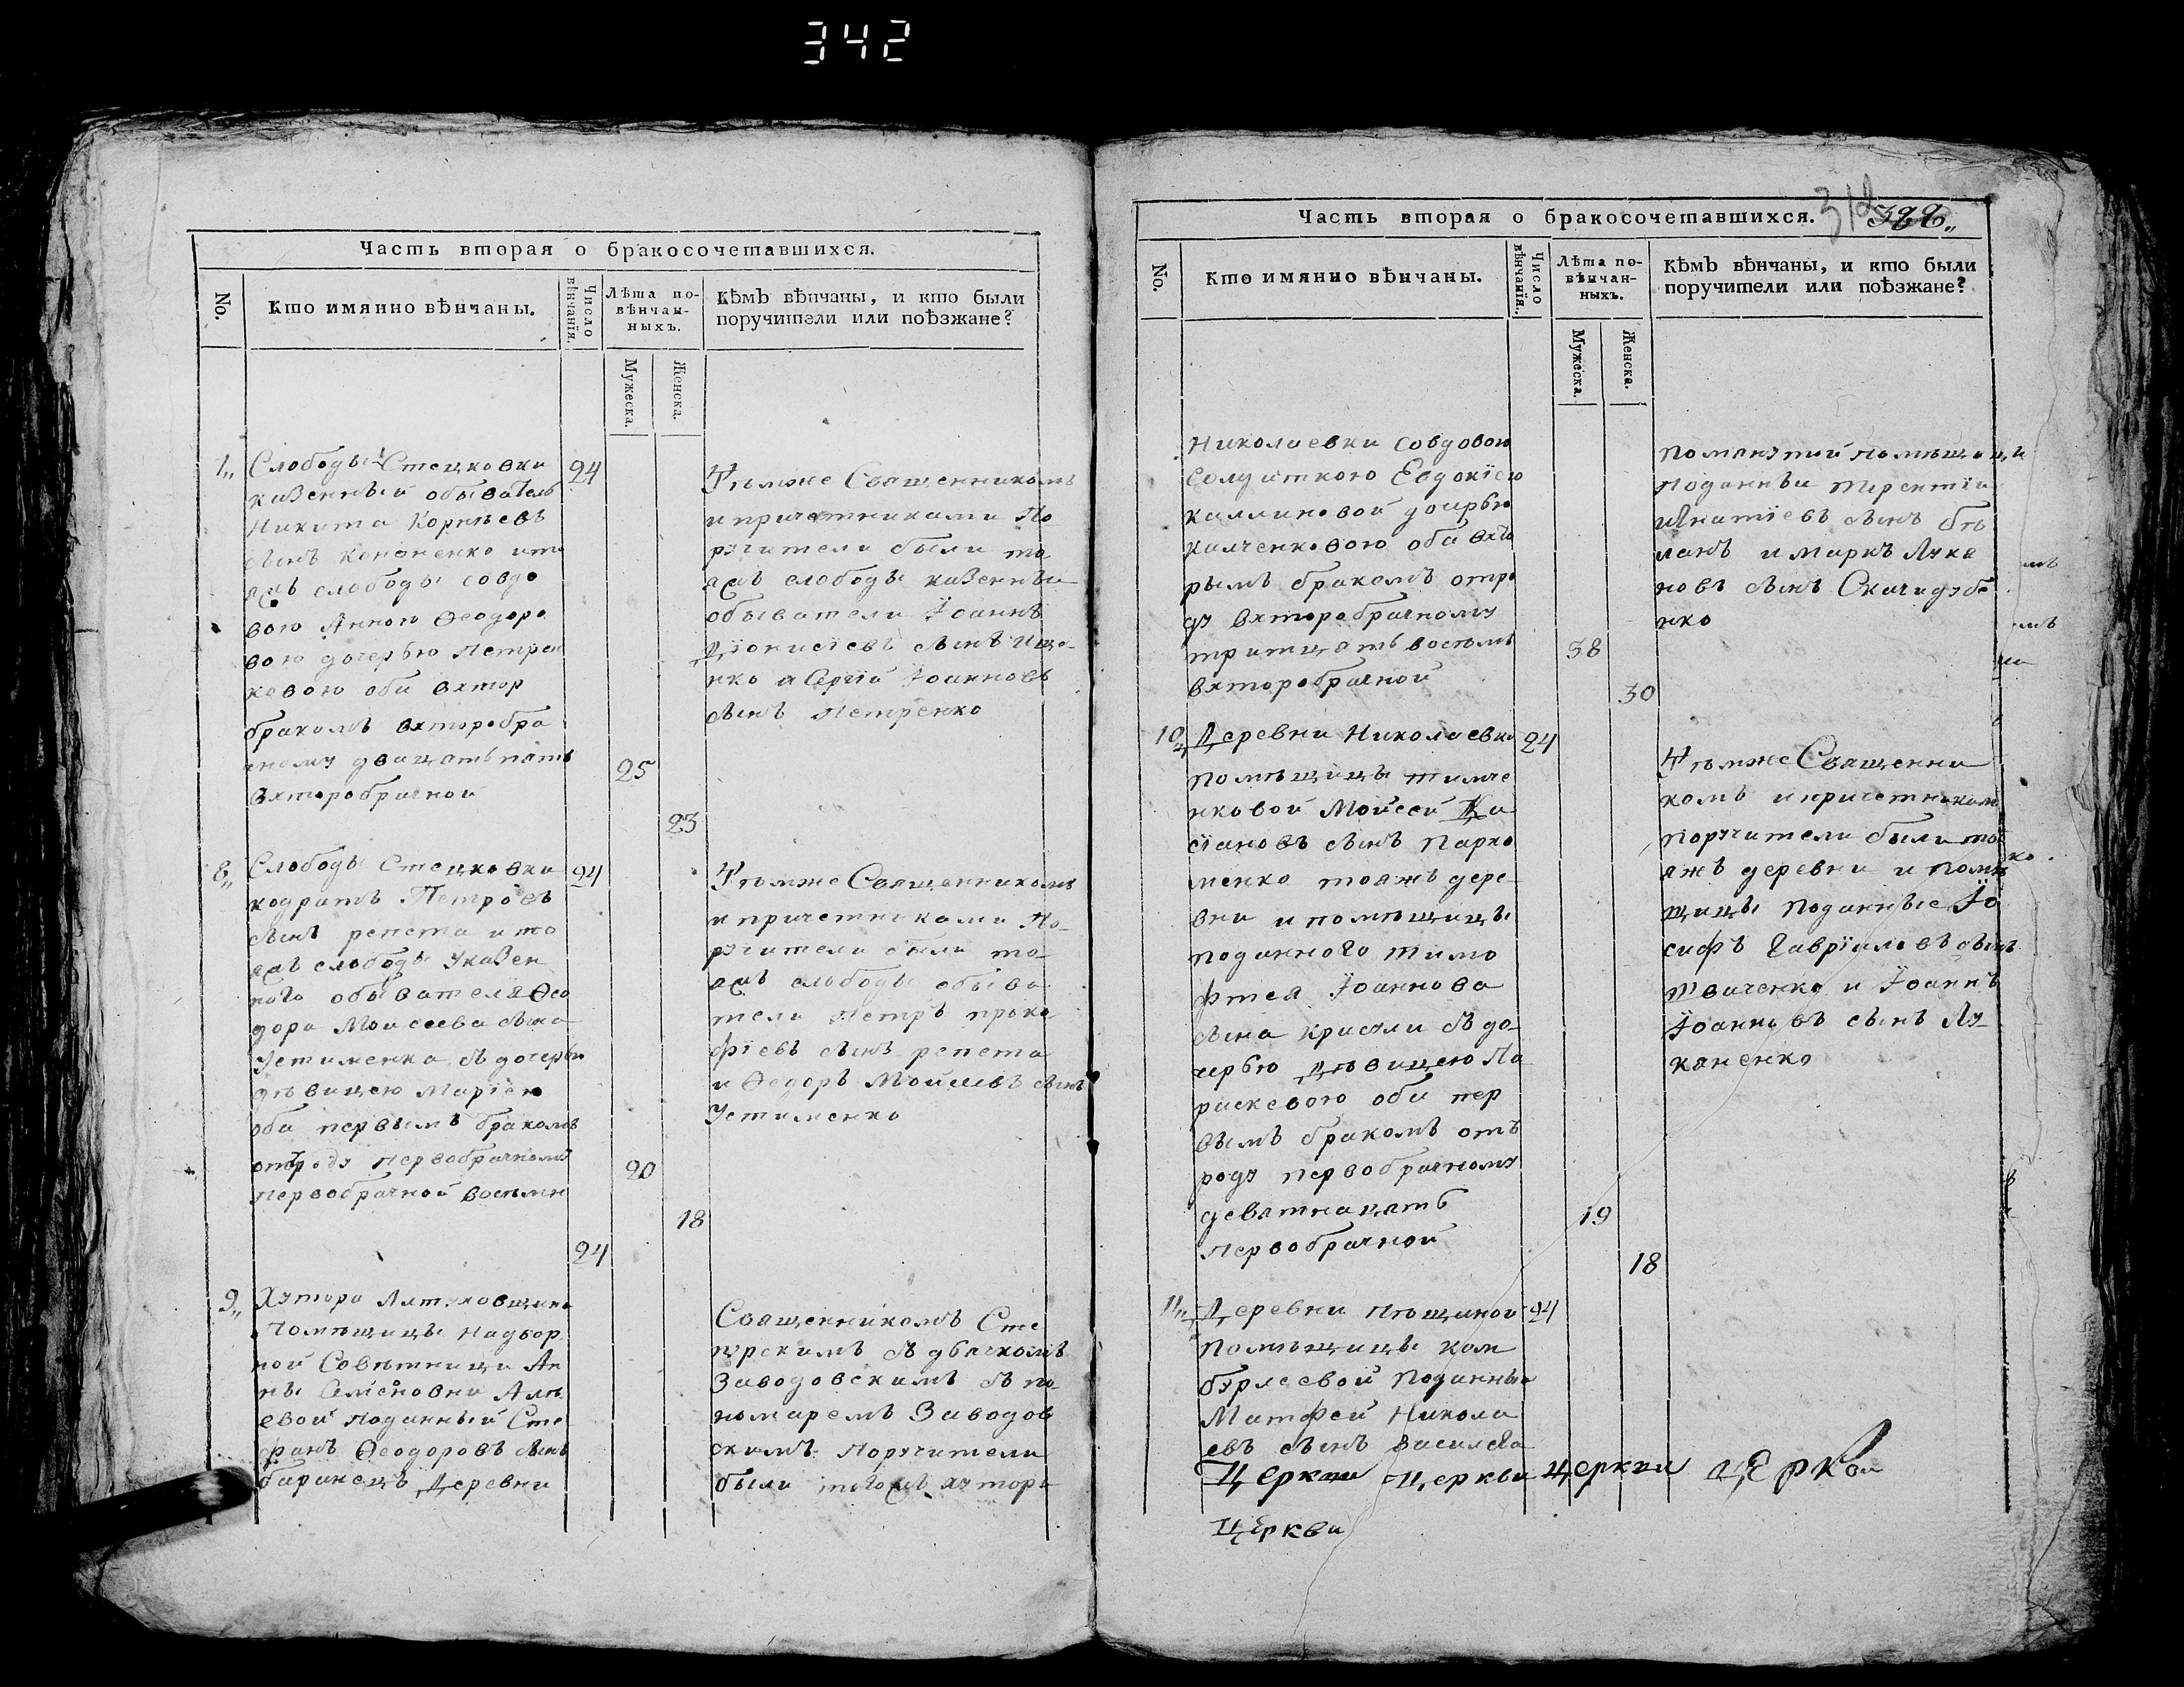 342
Часть вторая о бракосочетавшихся.
No.
Кто имянно вѣнчаны.
Число вѣнчанія.
Лѣта по-
вѣнчан-
ныхъ.
Кѣмъ вѣнчаны, и кто были
поручители или поѣзжане?
Мужеска.
Женска.
7,, Слободы Стецковки 24
казенный обыватель
Никита Корнѣевъ
сынъ кононенко и то
яжъ слободы совдо
вою Анною Ѳеодоро
вою дочерью Петрен
ковою оба вхтор
бракомъ вхторобра
чному двацать пять 25
вхторобрачной
23
Тѣмже Священникомъ
и причетниками По
ручители были то
яжъ слободы казенныи
обыватели Іоаннъ
Діонисіевъ сынъ Ище-
нко и Сергій Іоанновъ
сынъ Петренко
8,, Слободы Стецковки 24
кодратъ Петровъ
сынъ репета и то
яжъ слободы у казен
наго обывателя Ѳео
дора Моисеева сына
Устименка съ дочерью
дѣвицею Маріею
оба первымъ бракомъ
отроду первобрачному 20
первобрачной восѣмн
18
Тѣмже Священникомъ
и причетниками По-
ручители были то-
яжъ слободы обыва
тели Петръ проко
фіевъ сынъ репета
и Ѳедоръ Мойсеевъ сынъ
Устименко
24
9,, Хутора
Помѣщицы Надвор
ной Совѣтници Ан
ны Семеновни
евой подданный Сте
фанъ Ѳеодоровъ сынъ
баранецъ Деревни
Священникомъ Сте
пурскимъ съ дьячкомъ
Заводовскимъ съ по-
номаремъ Заводов
скимъ Поручители
были тогожъ хутора
Часть вторая о бракосочетавшихся.
312 322,,
No.
Кто имянно вѣнчаны.
Число вѣнчанія.
Лѣта по-
вѣнчан-
ныхъ.
Кѣмъ вѣнчаны, и кто были
поручители или поѣзжане?
Мужеска.
Женска.
Николаевки совдовою
Солдаткою Евдокіею
каллиновой дочерью
оба вхто
рымъ бракомъ отро
ду вхторобрачному
тритцать восѣмь 38
вхторобрачной
30
помянутой помѣщици
подданныи терентіи
игнатіевъ сынъ бѣ
ланъ и Маркъ Лука
новъ сынъ
нко
10,, Деревни Николаевки 24
помѣщицы тимче
нковой Мойсей Ка
сіановъ сынъ Пархо
менко тояжъ дере-
вни и помѣщицы
поданного тимо
фтея Іоаннова
сына кривули съ до-
черью дѣвицею Па
раскевою оба пер
вымъ бракомъ отъ
роду первобрачному
девятнацать 19
первобрачной
18
Тѣмже Священни
комъ и причетникам
поручители были то
яжъ деревни и помѣ
щицы поданные Іо
сифъ Гавріиловъ сынъ
и Іоаннъ
Іоанновъ сынъ Лу-
каненко
11,, Деревни пѣщаной 24
Помѣщицы ком
бурлеевой поданный
Матфей Никола
евъ сынъ
Церкви Церкви Церкви Церкви
Церкви